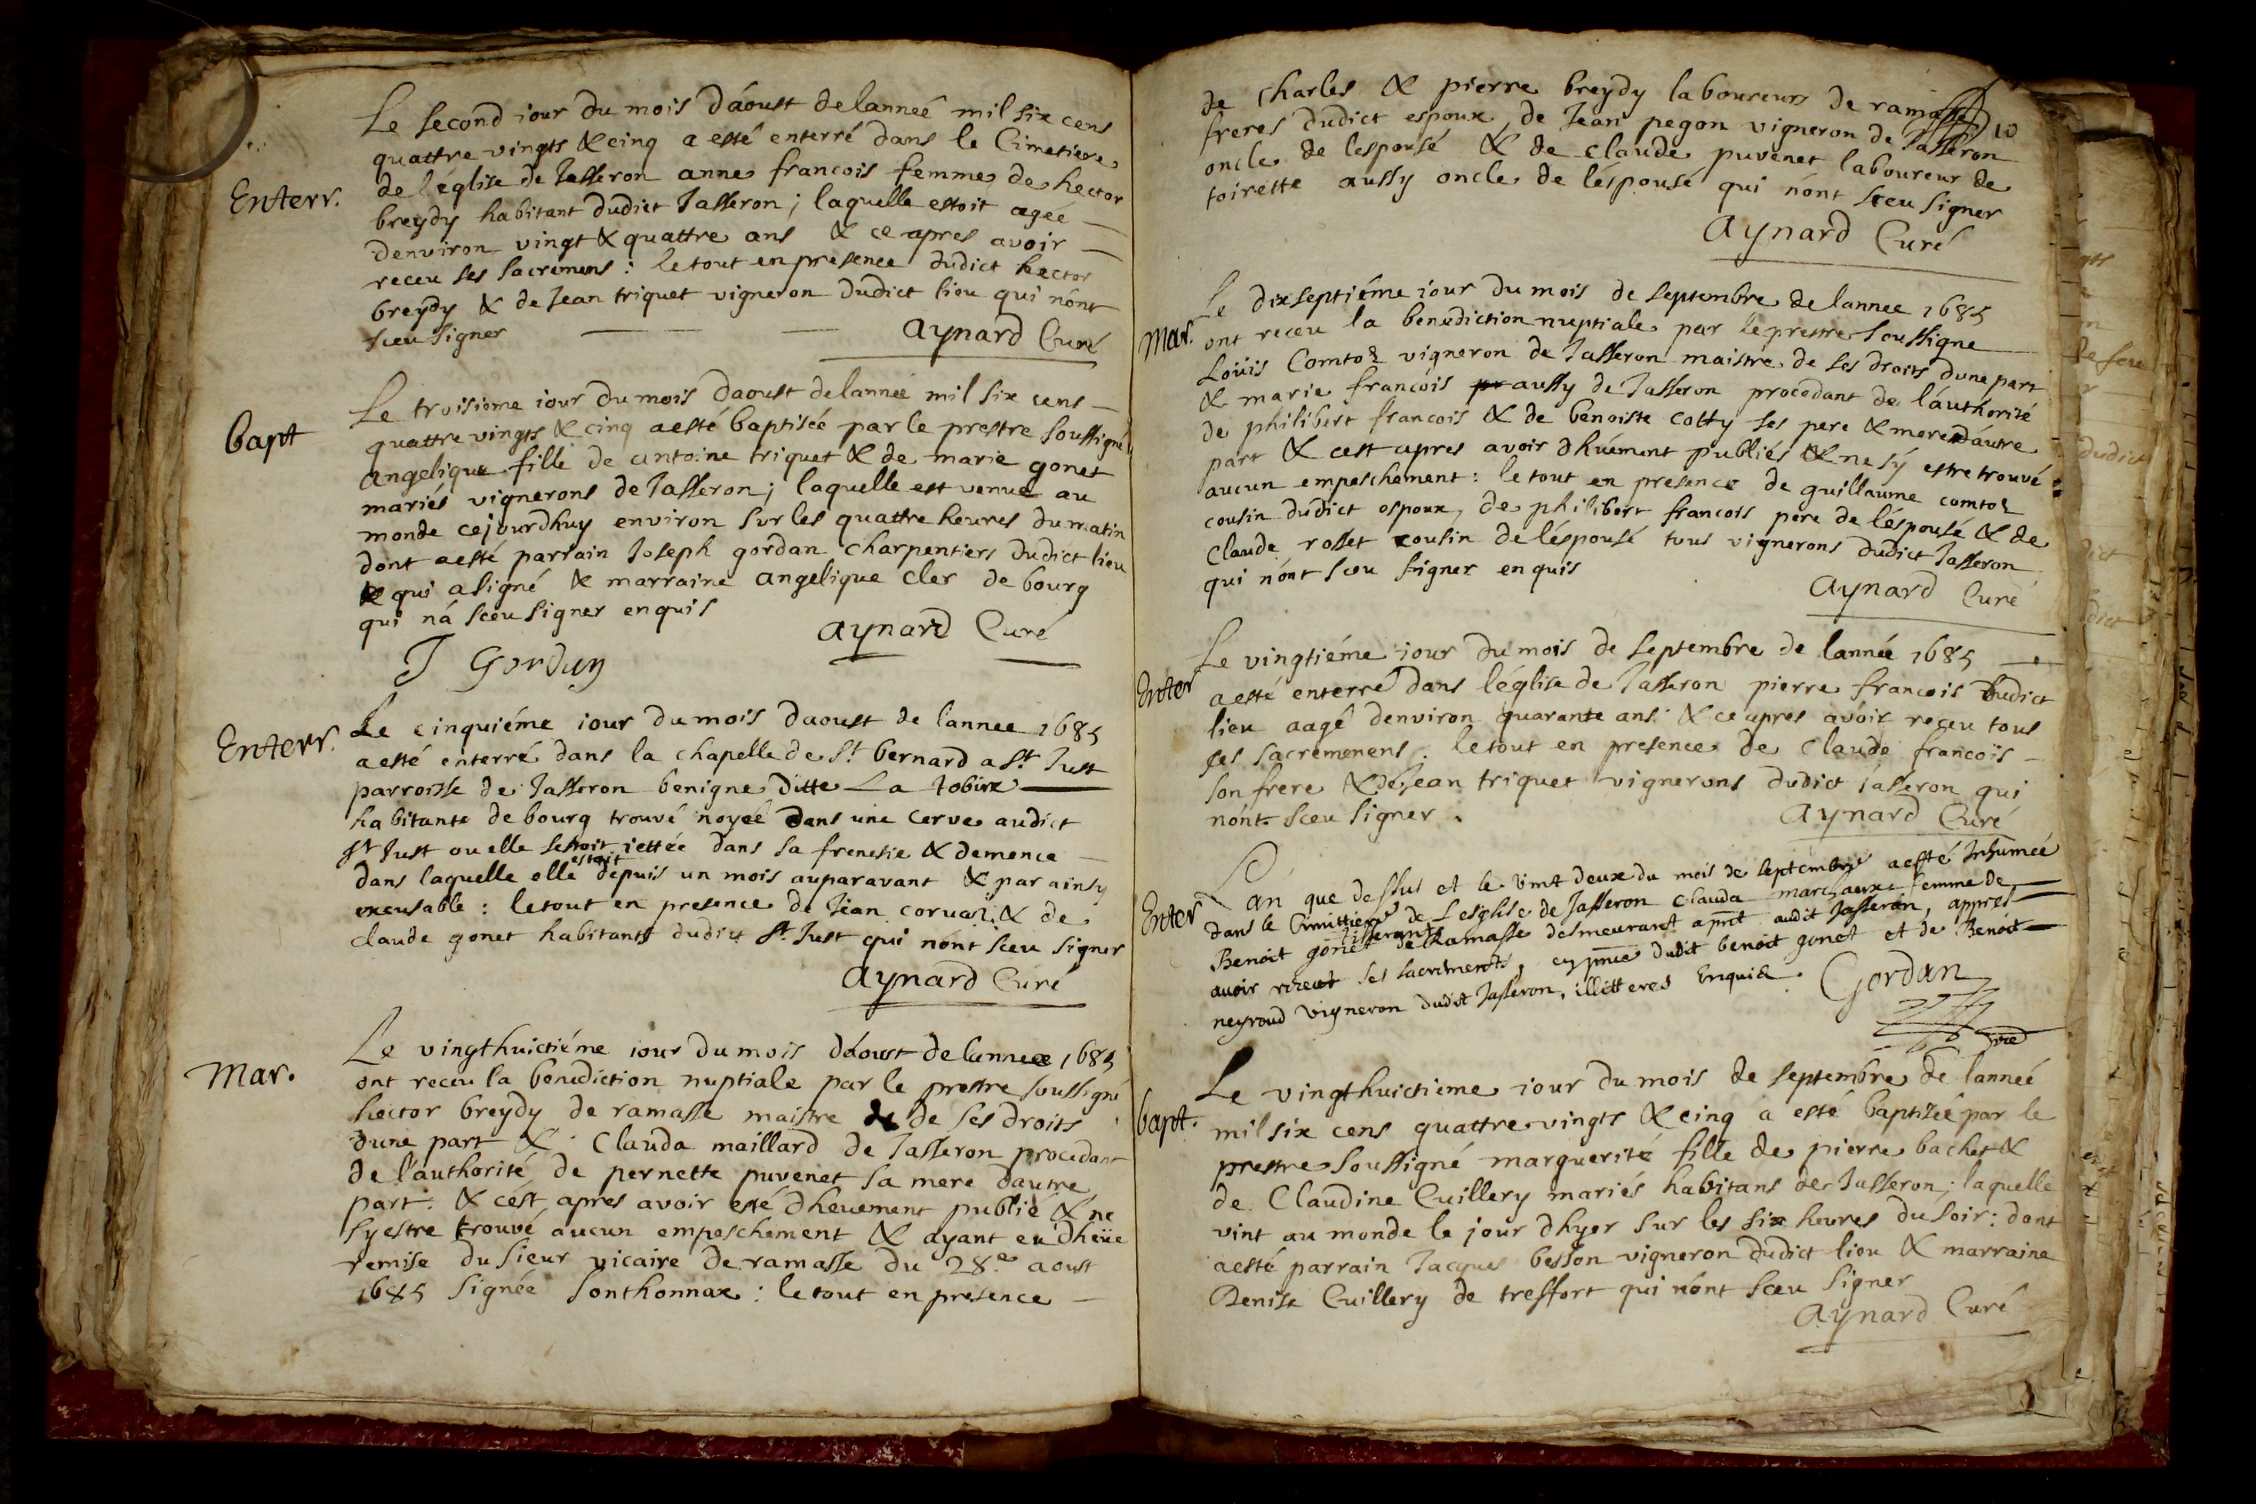 Le second iour du mois d'áoust de lanneé mil six cens
quattre vingts & cinq a esté enterré dans le Cimetiere
Enterr.
de l'église de Jasseron anne francois femme de hector
breydy habitant dudict Jasseron; laquelle estoit agée
denviron vingt & quattre ans & ce apres avoir
receu ses sacremens: le tout en presence dudict hector
breydy & de Jean triquet vigneron dudict lieu qui nónt
sceu signer
aynard Curé
Le troisieme iour du mois daoust de lanneé mil six cens
bapt
quattre vingts & cinq a esté baptisée par le prestre soussigné
angelique fille de antoine triquet & de marie gonet
mariés vignerons de Jasseron; laquelle est venue au
monde cejourdhuy environ sur les quattre heures du matin
dont a esté parrain Joseph gordan charpentiers dudict lieu
& qui a signé & marraine angelique cler de bourg
qui ná sceu signer enquis
aynard Curé
J Gordan
Enterr.
Le cinquiéme iour du mois daoust de lannee 1685
a esté enterré dans la chapelle de St bernard a St Just
parroisse de Jasseron benigne ditte La
habitante de bourg trouvé noyeé dans une cerve audict
St Just ou elle sestoit iettée dans sa frenesie & demence
dans laquelle elle estoit depuis un mois auparavant & par ainsy
excusable: le tout en presence de Jean & de
claude gonet habitants dudict St Just qui nónt sceu signer
aynard Curé
Mar.
Le vingthuictiéme iour du mois dáoust de lannee 1685
ont receu la benediction nuptiale par le prestre soussigné
hector breydy de ramasse maistre de de ses droits
dune part & Clauda maillard de Jasseron procedant
de l'authorité de pernette puvenet sa mere dautre
part: & cést apres avoir esté dheuement publié & ne
sy estre trouvé aucun empeschement & ayant eu dheüe
remise du sieur vicaire de ramasse du 28.e aoust
1685 signée sonthonnax: le tout en presence
de charles & pierre breydy laboureurs de ramasse
freres dudict espoux, de Jean pegon vigneron de Jasseron
oncle de lespousé & de claude puvenet laboureur de
toirette aussy oncle de léspousé qui nónt sceu signer
aynard Curé
Le dixseptiéme iour du mois de septembre de lannee 1685
Mar.
ont receu la benediction nuptiale par le prestre soussigne
Loüis Comtoz vigneron de Jasseron maistre de ses droits dune part
& marie francóis aussy de Jasseron procedant de l'áuthorité
de philibert francois & de benoiste cotty ses pere & mere dáutre
part & cest apres avoir dhúement publiés & ne sy estre trouvé
aucun empeschement: le tout en presence de guillaume comtoz
cousin dudict espoux, de philibert francois pere de léspousé & de
Claude rosset cousin de léspousé tous vignerons dudict Jasseron
qui nónt sceu signer enquis
aynard Curé
Le vingtiéme iour du mois de septembre de lannée 1685
Enter
a esté enterré dans léglise de Jasseron pierre francois dudict
lieu aagé denviron quarante ans & ce apres avóir receu tous
ses sacremenens: le tout en presence de claude francoïs
son frere & de Jean triquet vignerons dudict Jasseron qui
nónt sceu signer.
aynard Curé
Lan que dessus et le vint deux du mois de septembre a esté Inhumée
Enter
dans le Cimittiere de Lesglise de Jasseron Clauda marchaux femme de
Benoit gonet tisserant de Ramasse desmeurant audit Jasseron, appres
avoir receut ses sacrements, en pnce dudit benoit gonet et de Benoit
neyroud vigneron dudit Jasseron, illitteres Enquis. Gordan
Le vingthuictieme iour du mois de septembre de lanneé
bapt.
mil six cens quattre vingts & cinq a esté baptizéé par le
prestre soussigné marguerité fille de pierre bachet &
de Claudine Cuillery mariés habitans de Jasseron; laquelle
vint au monde le jour dhyer sur les six heures du soir: dont
a esté parrain Jacques besson vigneron dudict lieu & marraine
Denise Cuillery de tresfort qui nónt sceu signer
aynard Curé